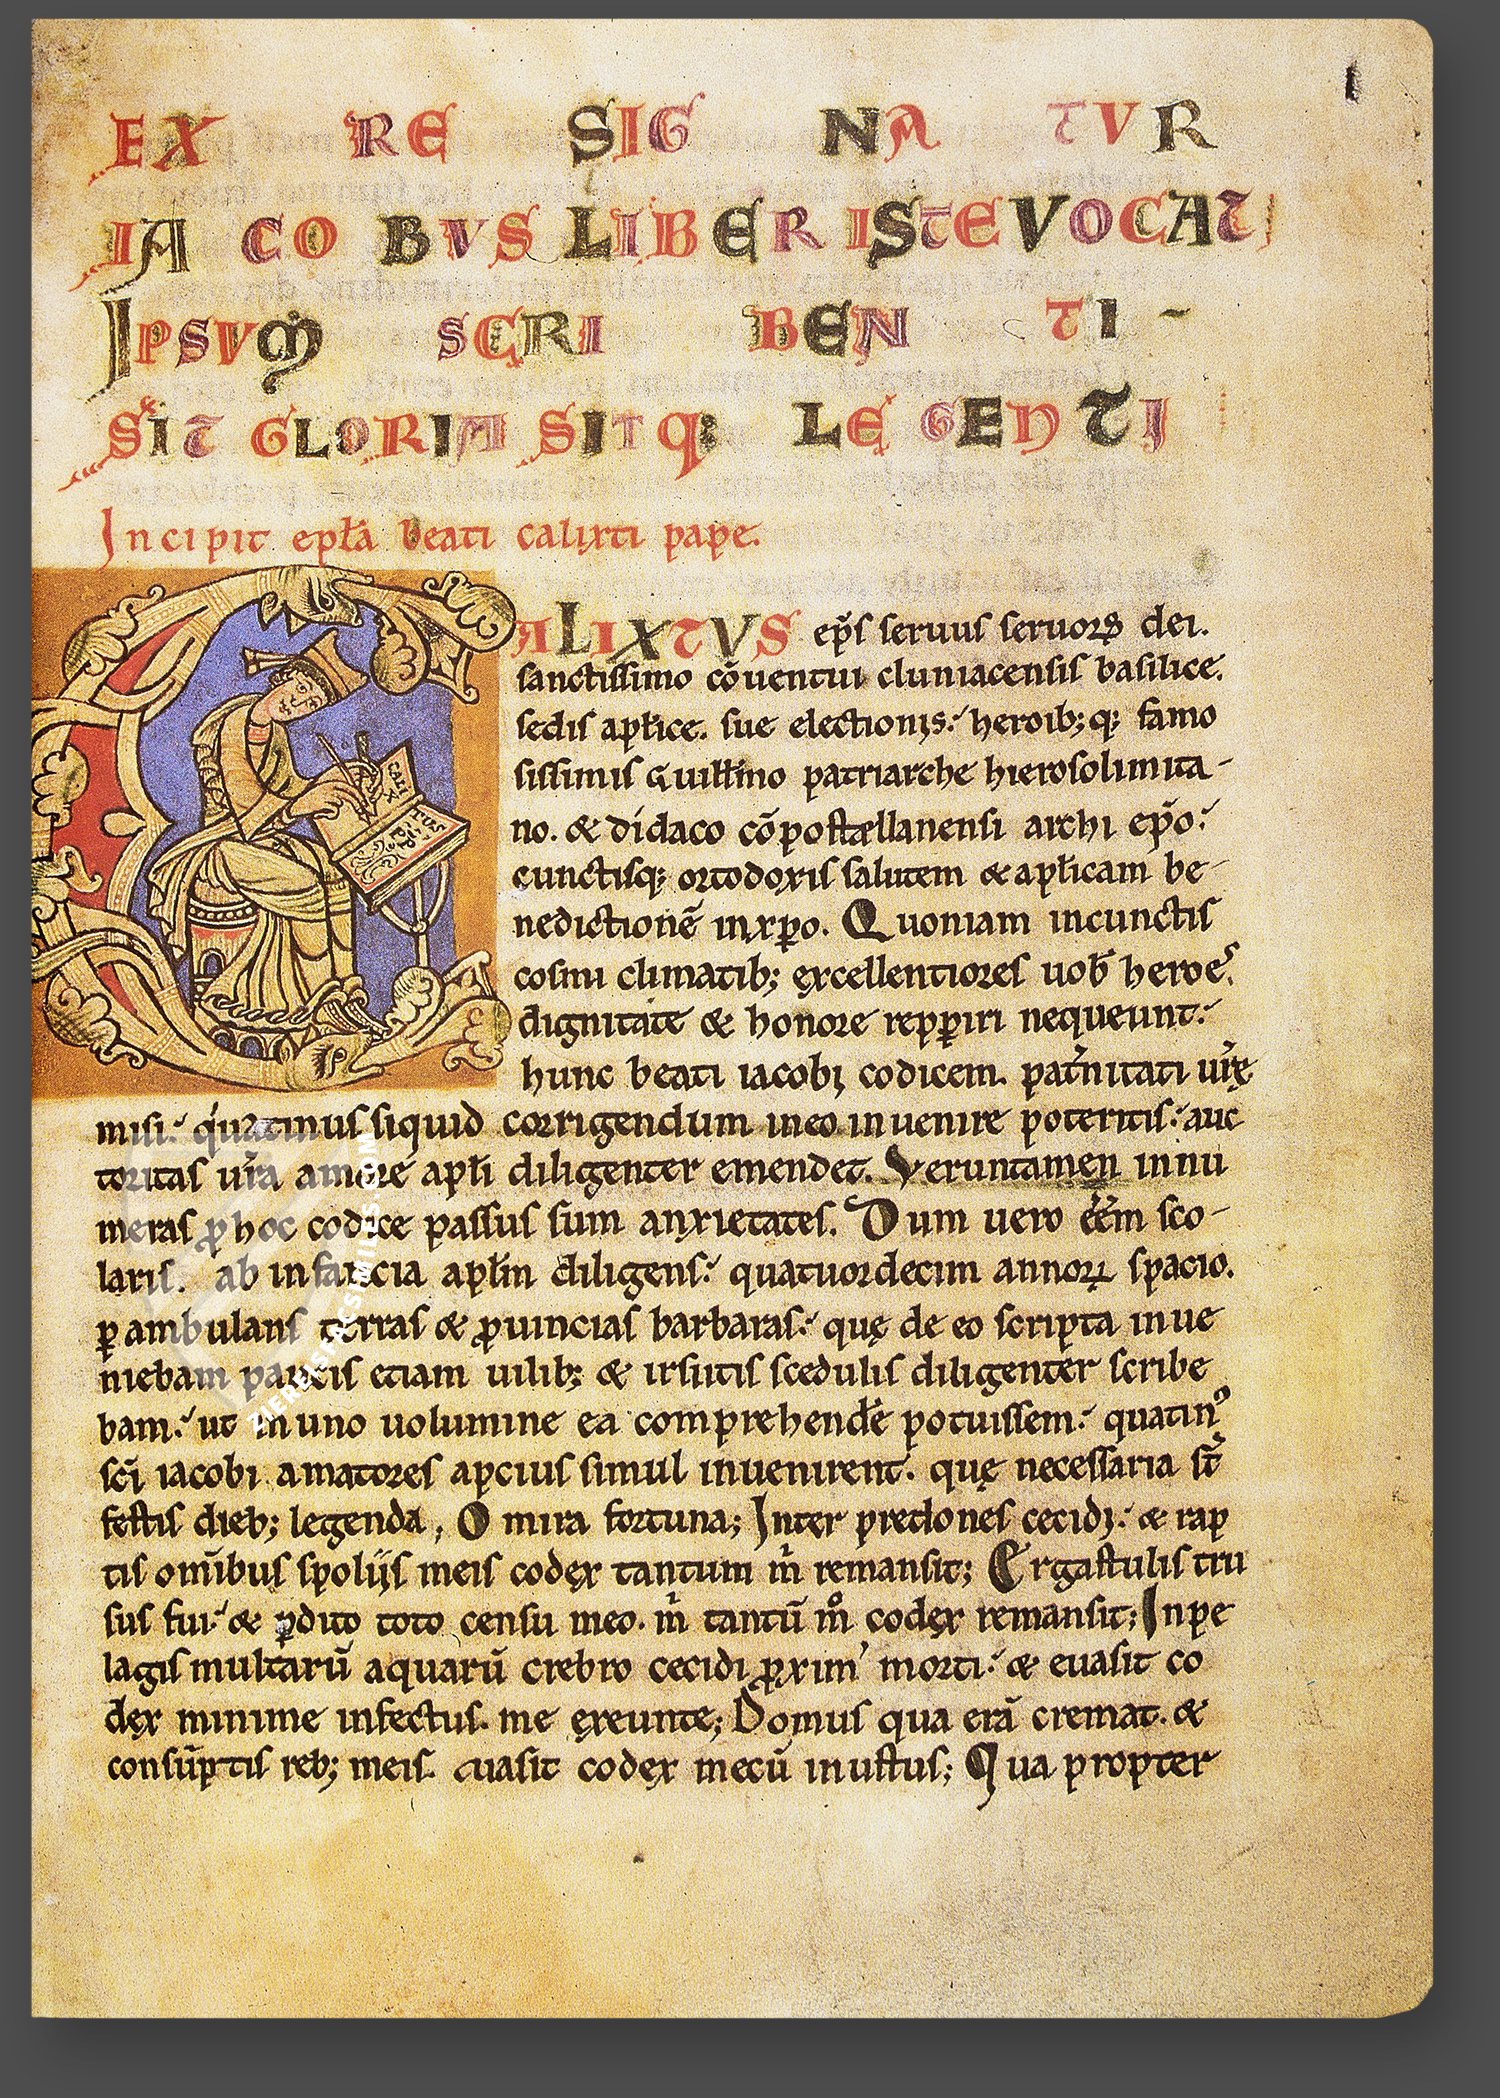 I
EX RE SIG NA TVR
IA CO BVS LIBER ISTE VOCAT
IPSVM SCRI BEN TI -
SIT GLORIA SITQ: LE GENTI
Incipit epła beati calixti pape.
ALIXTVS ep̄s seruus seruoꝝ dei.
sanctissimo cōuentui cluniacensis basilice.
sedis apłice. sue electionis: heroib; q; famo
sissimis Guiłłmo patriarche hierosolimita-
no. & didaco cōpostellanensi archi ep̄o:
cunctisq; ortodoxis salutem & apłicam be-
nedictionē in xp̄o. Quoniam in cunctis
cosmi climatib; excellentiores uob̄ heroes
dignitate & honore repꝑiri nequeunt:
hunc beati iacobi codicem. pat̄nitati ur̄ę
misi: quatinus siquid corrigendum in eo inuenire poteritis: auc
toritas ur̄a amore apłi diligenter emendet. Veruntamen innu
meras ꝓ hoc codice passus sum anxietates. Dum uero eēm sco-
laris. ab infancia apłm diligens: quatuordecim annoꝝ spacio.
ꝑambulans terras & ꝓuincias barbaras: quę de eo scripta inue
niebam paucis etiam uilib; & irsutis scedulis diligenter scribe
bam: ut in uno uolumine ea comprehendēe potuissem: quatinꝰ
sc̄i iacobi amatores apcius simul inuenirent. quę necessaria st̄
festis dieb; legenda, O mira fortuna; Inter predones cecidi: & rap
tis om̄ibus spolijs meis codex tantum m̄ remansit; Ergastulis tru
sus fui: & ꝑdito toto censu meo. m̄ tantū mͦ codex remansit; In pe
lagis multarū aquarū crebro cecidi ꝓxim' morti: & euasit co
dex minime infectus. me exeunte; Domus qua erā cremat. &
consūptis reb; meis. euasit codex mecū inustus; Qua propter
CALIX
TUS
ZIEREISFACSIMILES.COM